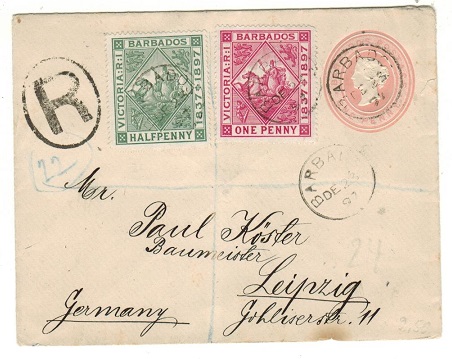 R
22
BARBADOS
VICTORIA:R:I
1837 1897
HALFPENNY
BARBADOS
VICTORIA:R:I
1837 1897
ONE PENNY
BARBAD
BARBA
DE
Mr.
Paul Köster
Baumeister
Leipzig
Germany
Gohliserstr. 11